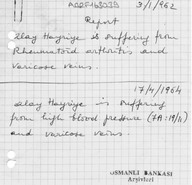 3/1/1962
Report
Olay Hayriye is suffering from
Rheumatoid arthritis and
varicose veins.
17/4/1964
Olay Hayriye is suffering
from high blood pressure
and varicose veins.
OSMANLI BANKASI
Arşivleri